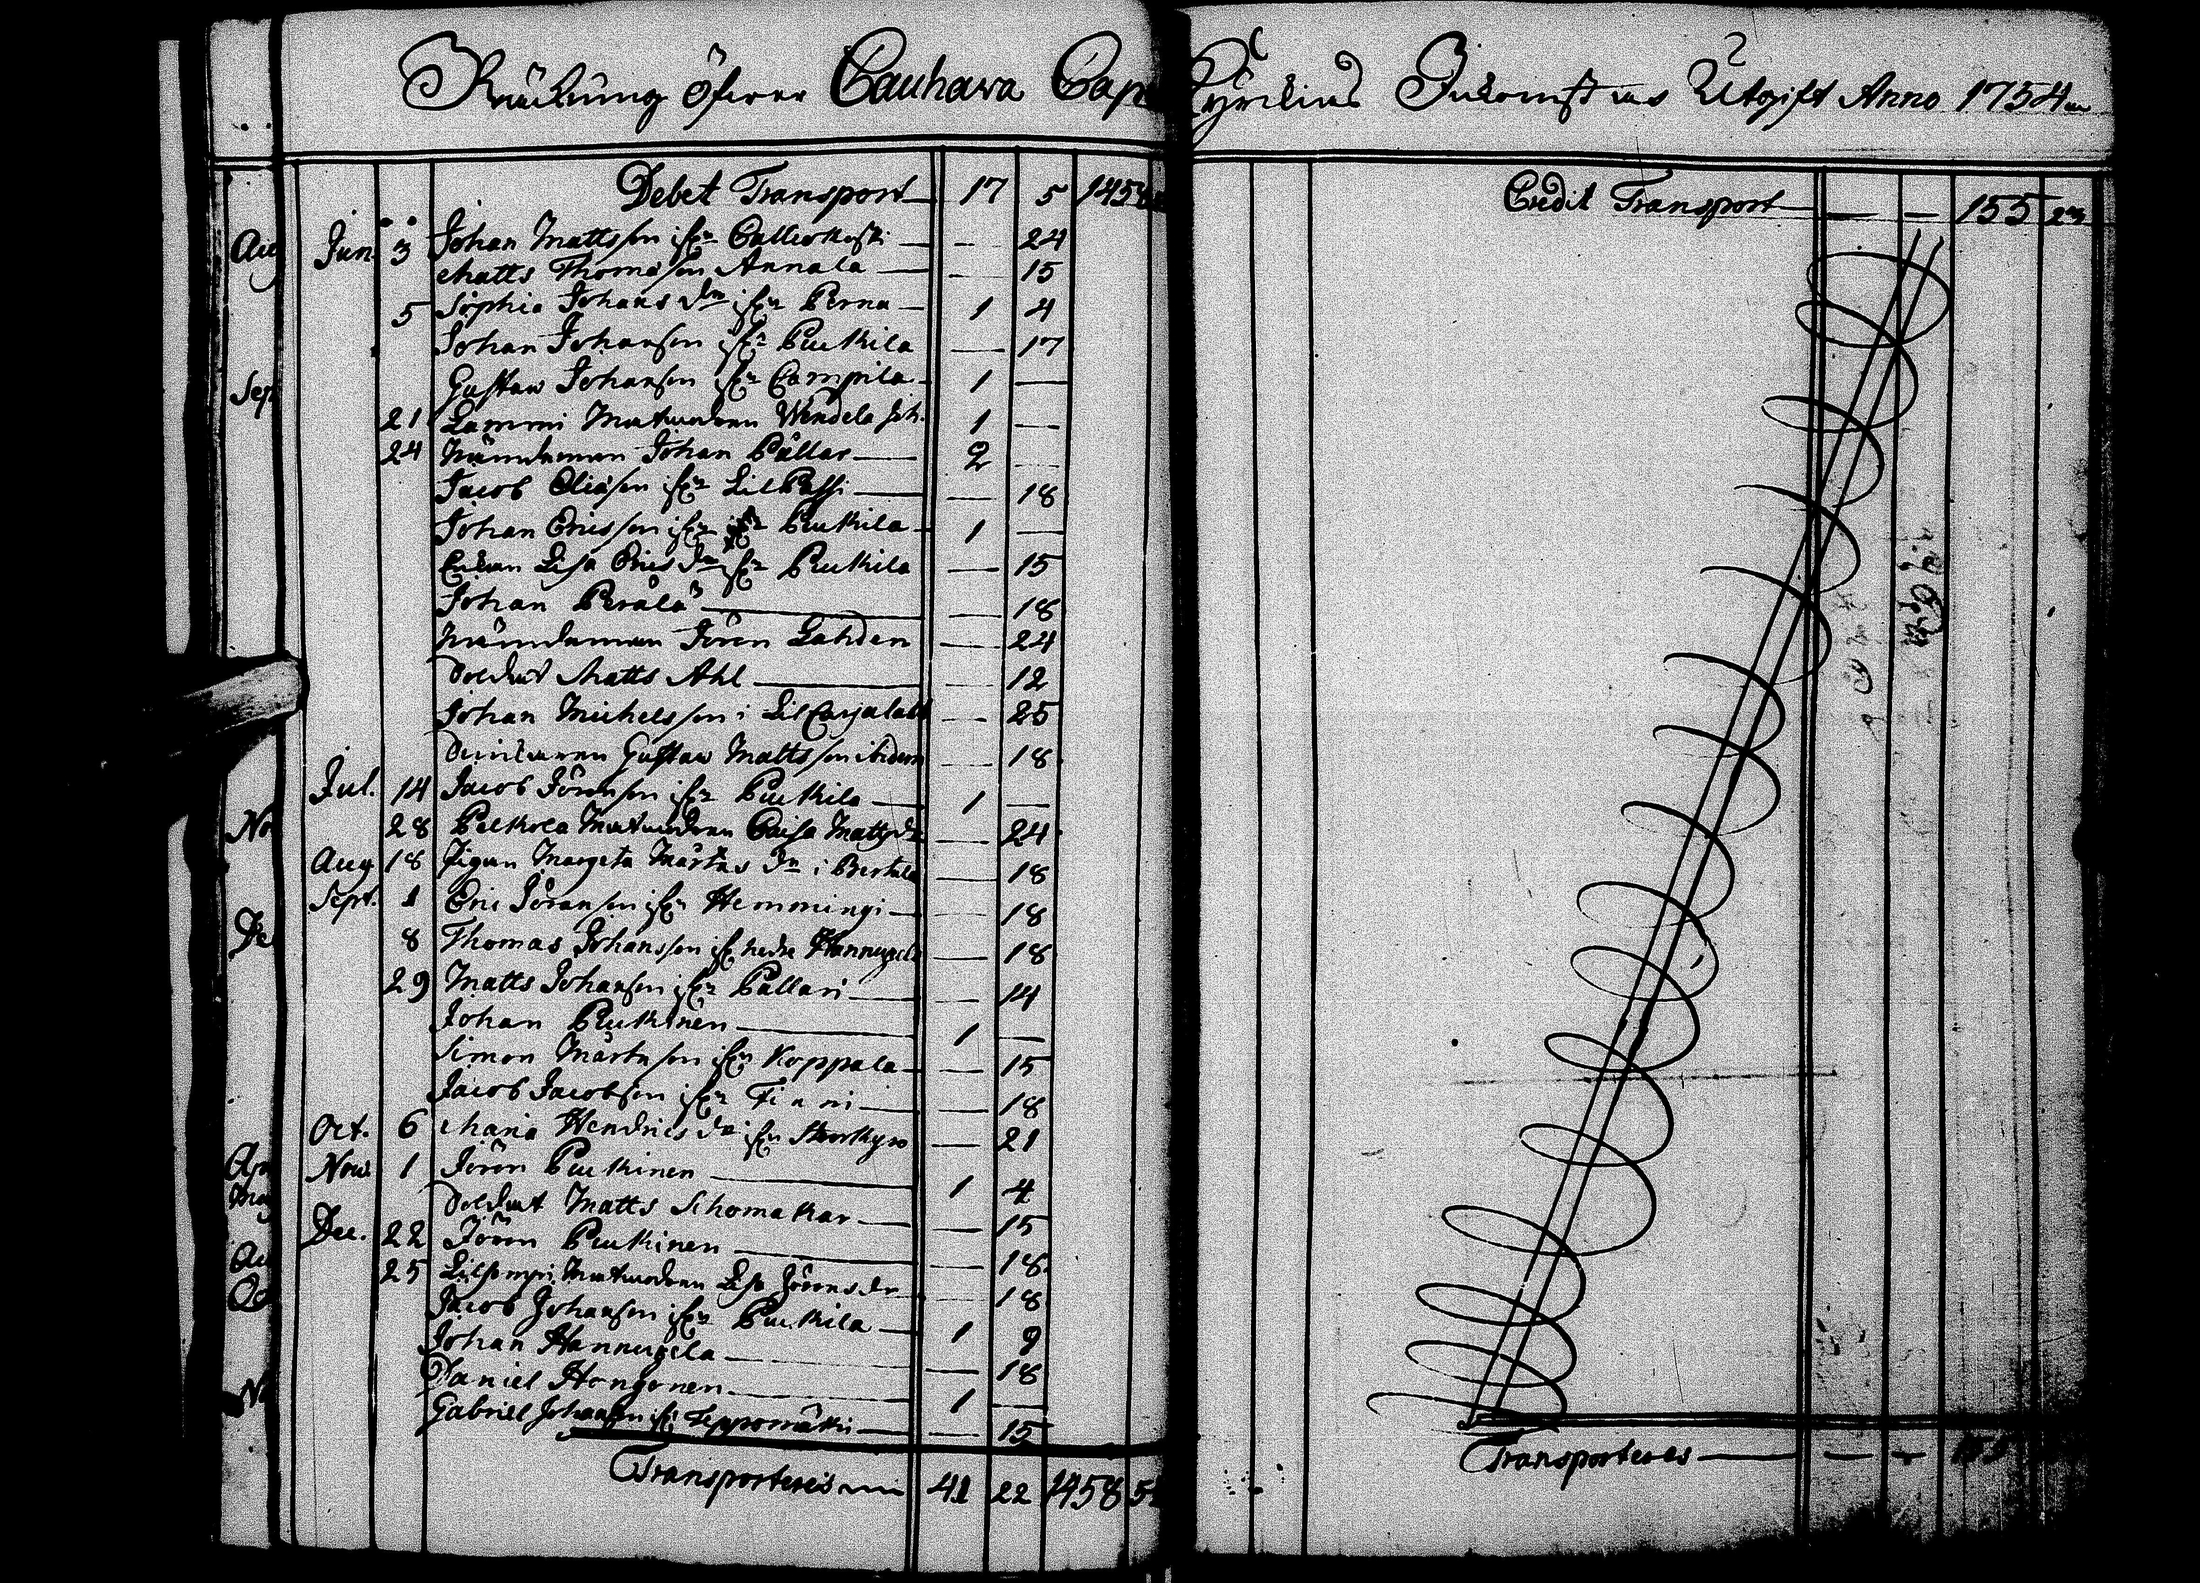 Räkning öfwer Cauhawa Cap
Kyrckius Inkomst och Utgift Anno 1754
Debet Transport 17 5 1458
Jun. 3 Johan Mattsson — 24
Matts Thomasson Annala — 15
5 Sophia Johans dr ifrn Perna — 1 4
Johan Johansson ifrn Puckila — 17
Gustaw Johansson ifrn Campila 1 —
21 Lammi Matmodren Wendela Joh. 1 —
24 Nämdeman Johan Pållar — 2 —
Jacob Eliasson ifrn LilPassi — 18
Johan Ericsson ifrn Puckila 1 —
Enkan Lisa Erics dr ifrn Puckila — 15
Johan Peräla — 18
Nämdeman Jören Lahden — 24
Soldat Matts Ahl — 12
Johan Michelsson i — 25
Gustaw Mattsson ibidem — 18
Jul. 14 Jacob Jöransson ifrn Puckila — 1 —
28 Pelkola Matmodren Caisa Matts dr — 24
Aug. 18 Pigan Margeta Mårtens dr i Bertula — 18
Sept. 1 Eric Jöransson ifrn Hemmingi — 18
8 Thomas Johansson Hannugela — 18
29 Matts Johansson ifrn Pållari — 14
Johan Puckinen — 1 —
Simon Mårtensson ifrn Koppala — 15
Jacob Jacobsson ifrn Finni — 18
Oct. 6 Maria Hendrics dr ifrn Storkyro — 21
Now. 1 Jören Puckinen — 1 4
Soldat Matts Schomakar — 15
Dec. 22 Jören Puckinen — 18
25 Matmodren Lisa Jörens dr — 18
Jacob Johansson ifrn Puckila — 1 9
Johan Hannugela — 18
Daniel Hongonen — 1 —
Gabriel Johansson ifrn Seppomäki — 15
Transporteres 41 22 1458
Credit Transport — — 155
Transporteres — — 155
Aug
Sep
No
De
Ap
May
Au
Oc
No